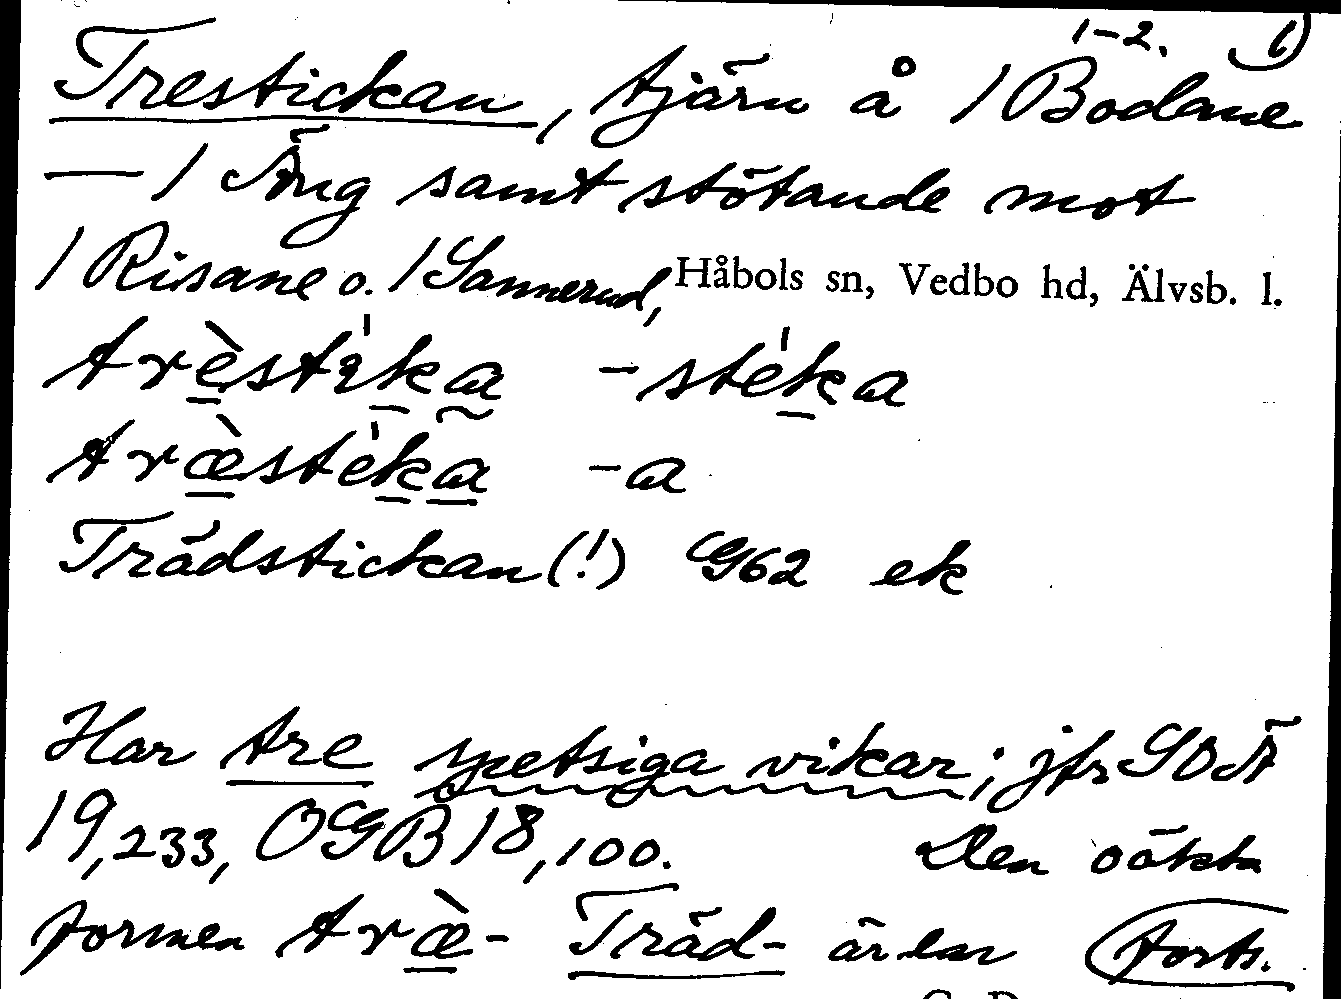 1-2. 1)
Trestickan, tjärn å 1 Bodane
— 1 Äng samt stötande mot
1 Risane o. 1 Sannerud, Håbols sn, Vedbo hd, Älvsb. l.
trèstìka -stéka
træ̀stéka -a
Trädstickan (!) G62 ek
Har tre spetsiga vikar; jfr SOÄ
19,233, OGB 18,100. Den oäkta
formen træ̀- Träd- är en forts.